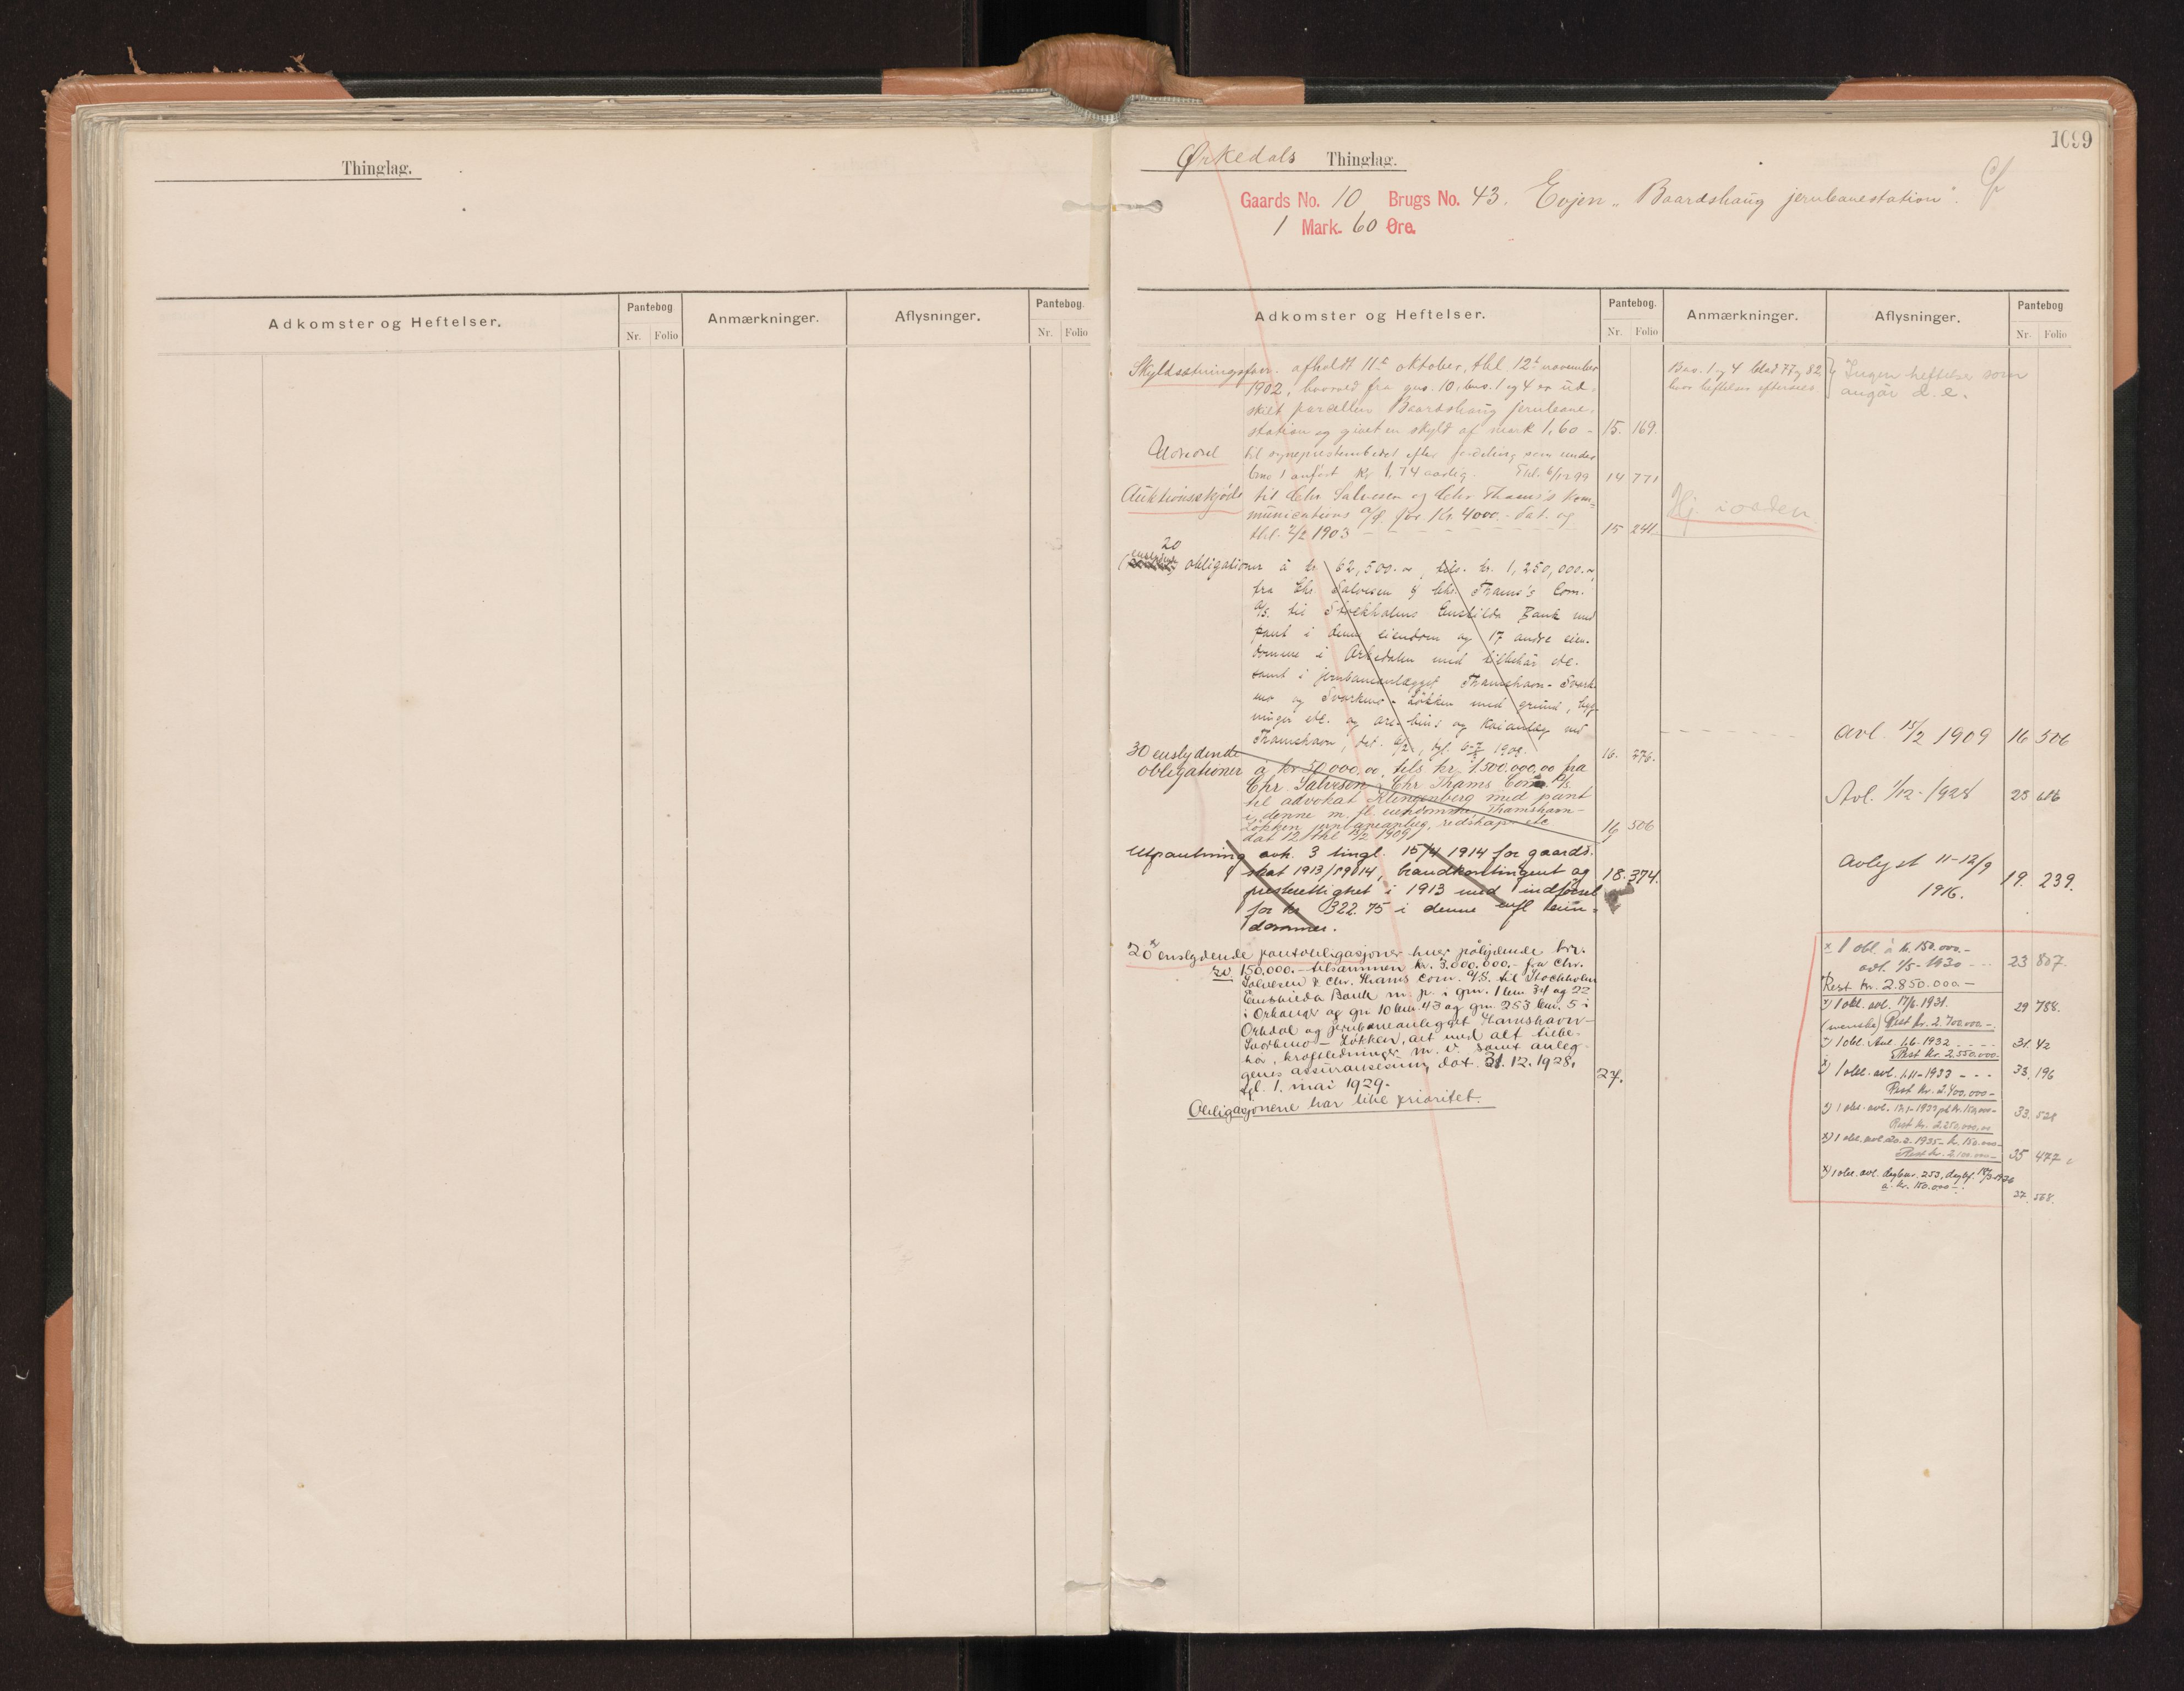 Thinglag.
Adkomster og Heftelser.
Pantebog
Nr. Folio
Anmærkninger.
Aflysninger.
Pantebog.
Nr. Folio
1099
Ørkedals Thinglag.
Gaards No. 10 Brugs No. 43. Evjen „Baardshaug jernbanestation".
1 Mark. 60 Øre.
Adkomster og Heftelser.
Pantebog.
Nr. Folio
Anmærkninger.
Aflysninger.
Pantebog
Nr. Folio
Skyldsætningsforr. afholdt 11te oktober, thl. 12te november
1902, hvorved fra gns. 10, bns. 1 og 4 er ud-
skilt parcellen Baardshaug jernbane-
station og givet en skyld af mark 1,60 - 15. 169.
Bns. 1 og 4 blad 77 og 82
hvor heftelser eftersees
Ingen heftelser som
angår d. e.
til sognepræstembedet efter fordeling som under
bno 1 anført Kr 1,74 aarlig. Thl. 6/12 99 14 771
Auktionsskjøde til Chr. Salvesen og Chr. Thams's Kom-
munications a/s. for Kr. 4000.- dat. og
thl. 2/2 1903 - 15 241
20
( ) obligationer à kr. 62,500.-, tils. kr. 1,250,000.-,
fra Chr. Salvesen & Chr. Thams's Com.
A/S. til Stockholms Enskilda Bank med
pant i denne eiendom og 17 andre eien-
domme i Orkedalen med tilbehør etc.
samt i jernbaneanlægget Thamshavn - Svork-
mo og Svorkmo - Løkken med grund, byg-
ninger etc. og og kaianlæg ved
Thamshavn, 16. 276.
Avl. 15/2 1909 16 506
30 enslydende
obligationer à kr 50,000,00, tils kr. 1500.000,00 fra
Chr. Salvesen & Chr Thams Com. A/s.
til advokat Klingenberg med pant
i denne m. fl. eiendomme Thamshavn-
Løkken jernbaneanlæg, redskaper etc
dat 12 thl 15/2 1909 16 506
Avl. 1/12-1928 23 686
Utpantning avh. 3 tingl. 15/4 1914 for gaards-
skat 1913/1914, brandkontingent og
presterettighet i 1913 med indførsel
for kr 322.75 i denne mfl eien-
dommer.
18. 374.
Avlyst 11-12/9
1916.
19. 239.
20 enslydende pantobligasjoner hver pålydende kr.
150.000.- tilsammen kr. 3.000.000.- fra Chr.
Salvesen & Chr. Thams Com. A/S. til Stockholm
Enskilda Bank m. p. i gnr. 1 bnr. 34 og 22
i Orkanger og gnr 10 bnr. 43 og gnr. 253 bnr. 5 i
Orkdal og jernbaneanlegget Thamshavn-
Svorkmo - Løkken, alt med alt tilbe-
hør, kraftledninger m. v. samt anleg-
genes assuransesum, dat. 31.12.1928,
tgl. 1. mai 1929.
27.
Obligasjonene har like prioritet.
x 1 obl à kr. 150.000.-
avl. 1/5-1930 - - - 23 807.
Rest kr. 2.850.000.-
x) 1 obl. avl. 17/6 1931. 29 788.
(svenske) Rest kr. 2.700.000.-
x) 1 obl. Avl. 1.6.1932 - - - - 31. 42
Rest kr. 2.550.000-
x) 1 obl. avl. 1.11-1933 - - - 33. 196
Rest kr. 2.400.000-
33. 528
Rest kr. 2.250.000,00
x) 1 obl. avl 20.2.1935 - kr. 150.000-
Rest kr. 2.100.000- 35 477
x) 1 obl. avl. dagbnr. 253, dagbf. 18/3-1936
à kr. 150.000-
37. 568.